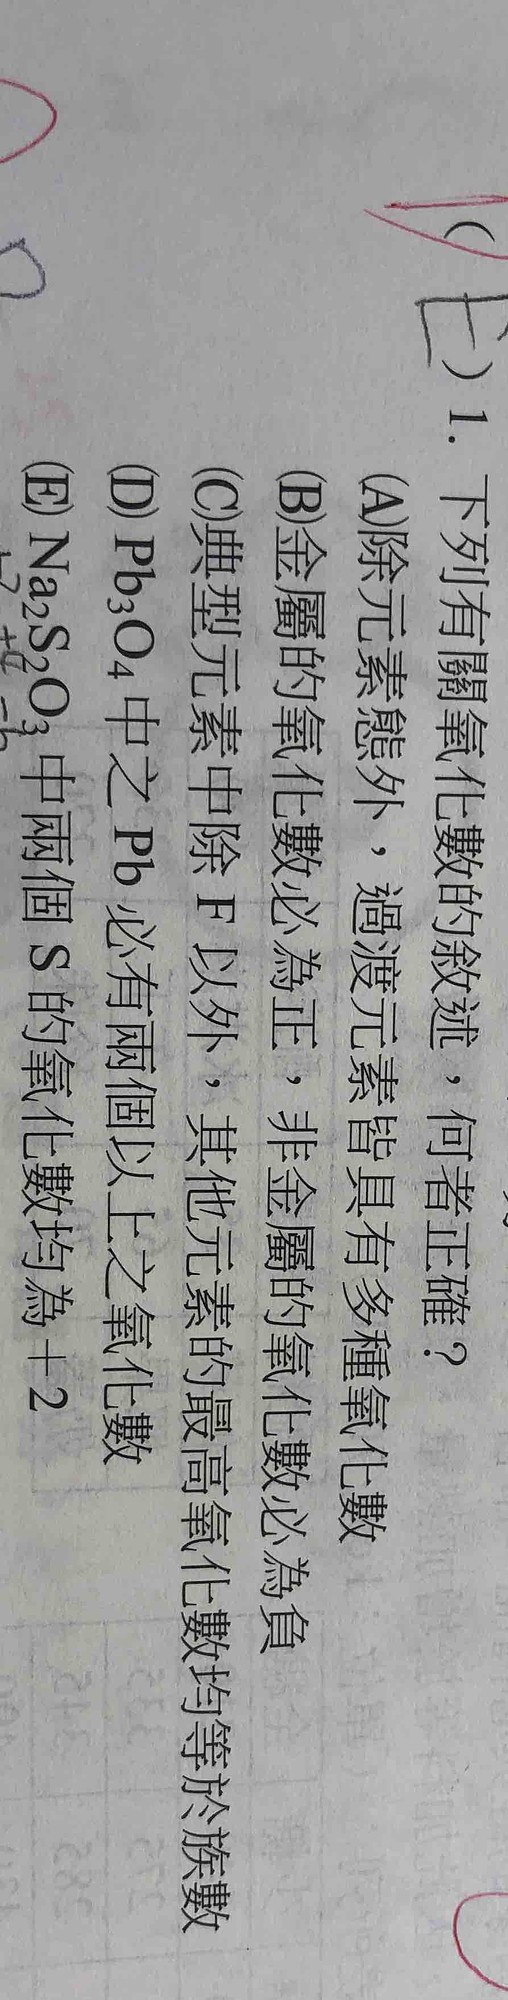 (E)1. 下列有關氧化數的敘述，何者正確？
(A)除元素態外，過渡元素皆具有多種氧化數
(B)金屬的氧化數必為正，非金屬的氧化數必為負
(C)典型元素中除 F 以外，其他元素的最高氧化數均等於族數
(D) Pb₃O₄ 中之 Pb 必有兩個以上之氧化數
(E) Na₂S₂O₃ 中兩個 S 的氧化數均為＋2